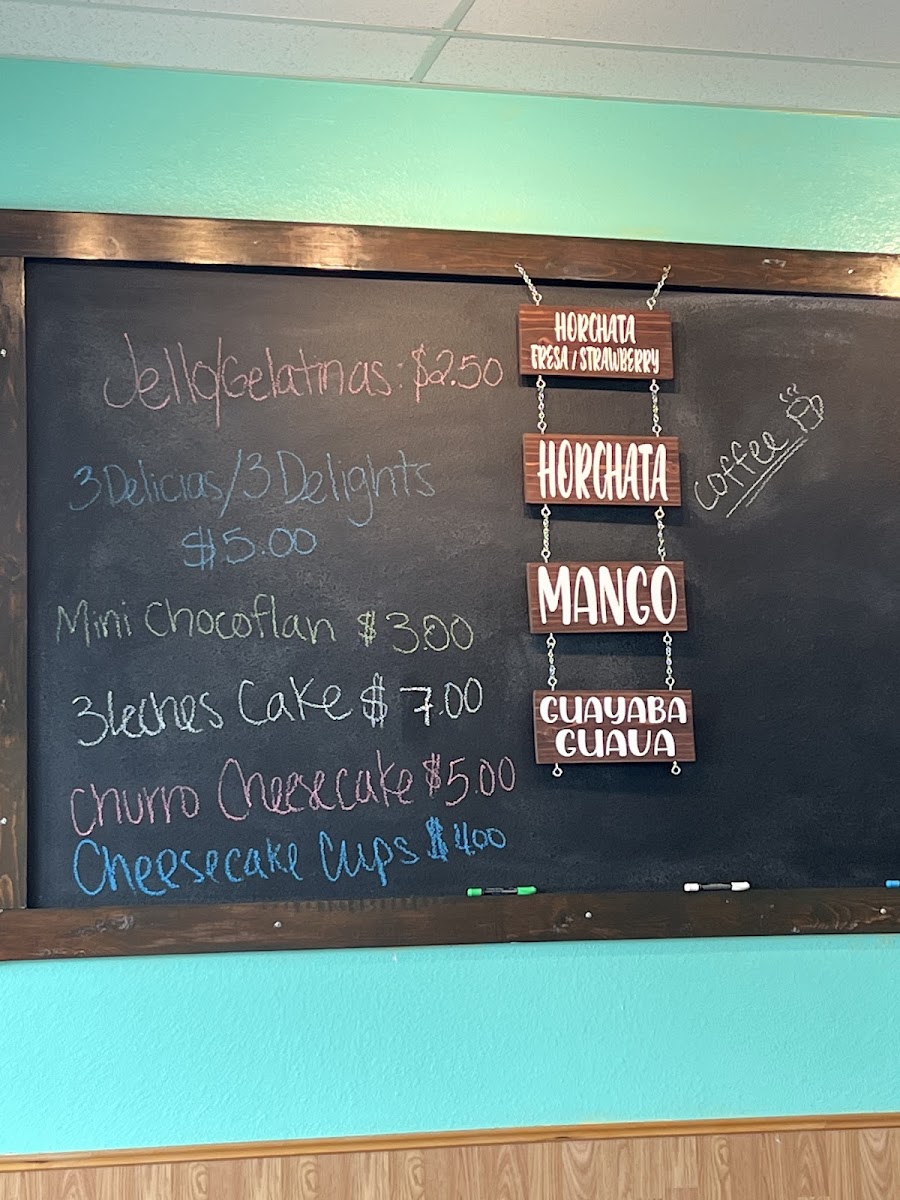 Jello/Gelatinas: $2.50
3 Delicias/3 Delights
$5.00
Mini Chocoflan $3.00
3leches Cake $7.00
Churro Cheesecake $5.00
Cheesecake Cups $4.00
HORCHATA
FRESA / STRAWBERRY
HORCHATA
MANGO
GUAYABA
GUAVA
Coffee